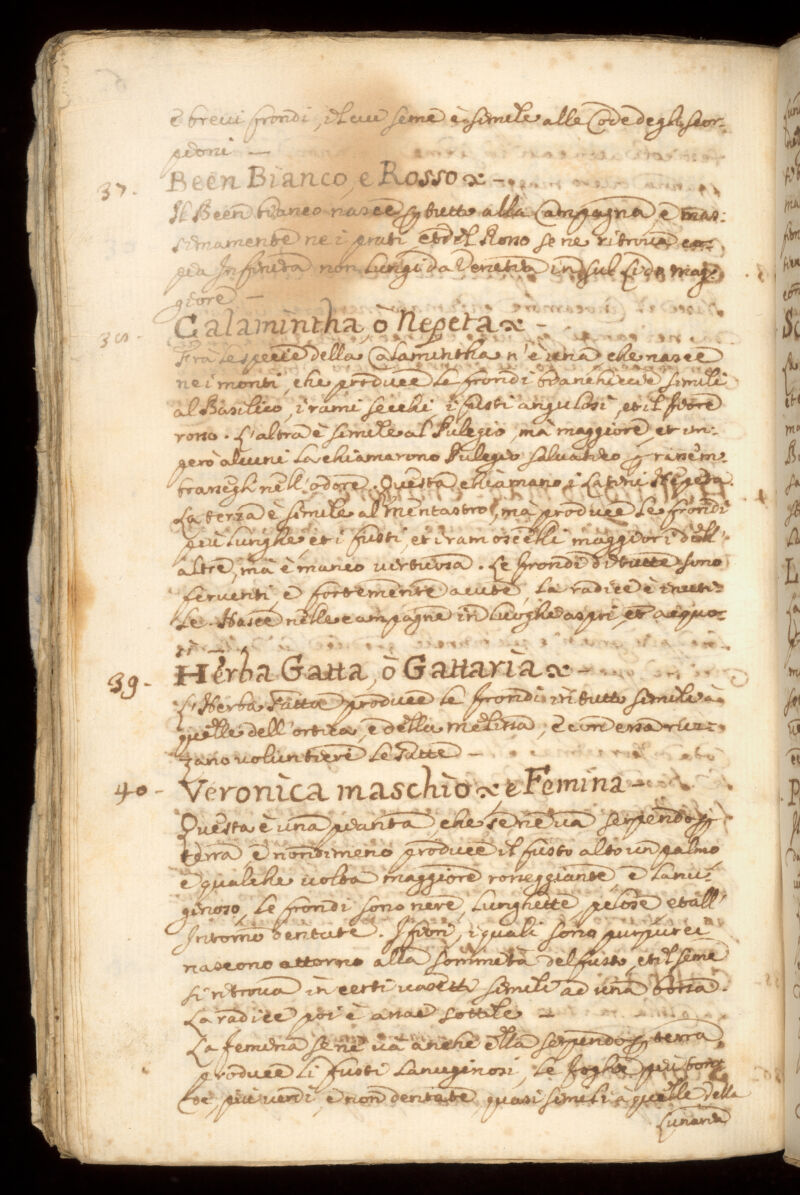 e brevi frondi, il cui seme è simile alle Code degli Scor-
pioni —
37. Been Bianco, e Rosso —
Il Been bianco nasce p tutto alla Campagna e mas-
simamente ne i prati, et del Rosso se ne ritrova co-
pia Infinita non lungi da Venetia in sul Lido mag-
giore —
38. Calamintha, ò Nepeta —
Fra le specie della Calamintha n'è una che nasce
ne i monti, che produce le frondi bianchiccie simili
al Basilico, i rami secchi i fusti angulosi, et il fiore
rosso. L'altra è simile al Pulegio, mà maggiore, et im-
però alcuni la chiamarono Pulegio salvatico
nell'odore. Questa chiamano i Latini Nepeta.
La terza è simile al Mentastro, ma produce le frondi
più lunghe, et i fusti, et i ramoscelli maggiori dell'
altre, mà è manco virtuosa. Le frondi di tutte sono
ferventi, e fortemente acute, la radice è inuti-
le. Nasce nelle campagne in luoghi aspri, et acquo-
si —
39 - Herba Gatta, ò Gattaria —
L'Herba Gatta produce le frondi in tutto simile à
quelle dell'ortica, e della melissa, e con essa ruz-
zano voluntiere le Gatte —
40 - Veronica maschio, e Femina —
Questa è una pianta, che se ne va serpendo p
terra e nondimeno produce il fusto alto un palmo
e qualche volta maggiore rosseggiante e lanu-
ginoso, le frondi sono nere, lunghette pelose et all'
Intorno dentate. I fiori, i quali sono purpurei
nascono attorno alla sommità del fusto, et il seme
si ritrova in certi vasetti simili ad una borsa.
La radice poi è assai sottile —
La femina se ne và anche ella serpendo p terra,
produce li fusti lanuginosi, le foglie più
più verdi, e non dentate quasi simili à quelle della
Lunaria